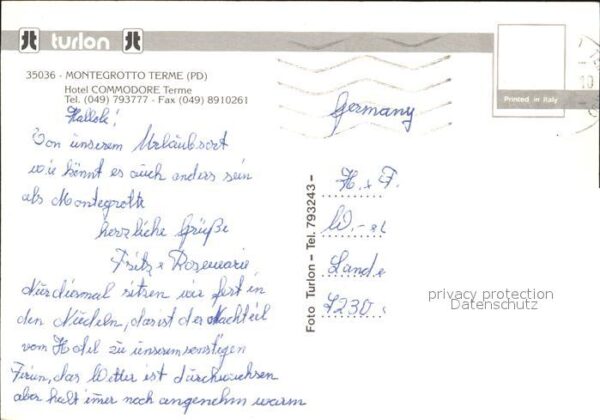 turlon
35036 - MONTEGROTTO TERME (PD)
Hotel COMMODORE Terme
Tel. (049) 793777 - Fax (049) 8910261
Printed in Italy
Germany
Von unserem Urlaubsort
wie könnt es auch anders sein
als Montegrotto
herzliche Grüße
Fritz + Rosemarie
Nur diesmal sitzen wir fest in
den Nudeln, das ist der Nachteil
vom Hotel zu unserem sonstigen
Ferien, das Wetter ist durchwachsen
aber halt immer noch angenehm warm
Foto Turlon - Tel. 793243 -
H. + F.
W.
Lande
7230
privacy protection
Datenschutz